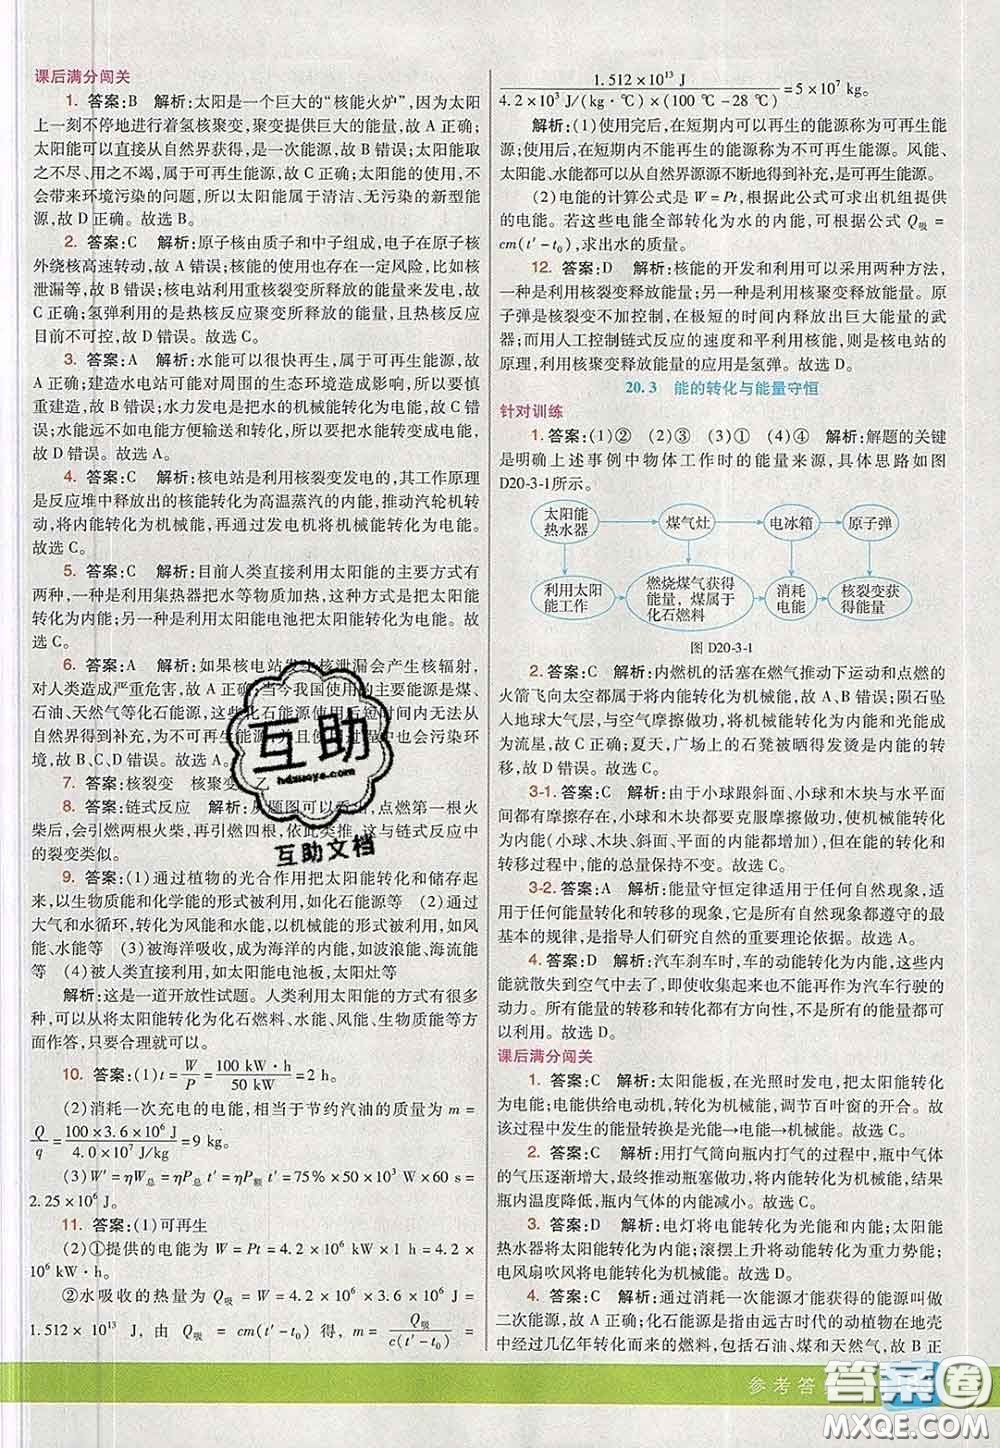 课后满分闯关
1. 答案:B 解析:太阳是一个巨大的“核能火炉”,因为太阳
上一刻不停地进行着氢核聚变,聚变提供巨大的能量,故 A 正确;
太阳能可以直接从自然界获得,是一次能源,故 B 错误;太阳能取
之不尽、用之不竭,属于可再生能源,故 C 正确;太阳能的使用,不
会带来环境污染的问题,所以太阳能属于清洁、无污染的新型能
源,故 D 正确。故选 B。
2. 答案:C 解析:原子核由质子和中子组成,电子在原子核
外绕核高速转动,故 A 错误;核能的使用也存在一定风险,比如核
泄漏等,故 B 错误;核电站利用重核裂变所释放的能量来发电,故
C 正确;氢弹利用的是热核反应聚变所释放的能量,且热核反应
目前不可控,故 D 错误。故选 C。
3. 答案:A 解析:水能可以很快再生,属于可再生能源,故 A
正确;建造水电站可能对周围的生态环境造成破坏,所以要合理
建造,故 B 错误;水力发电是把水的机械能转化为电能,故 C 错
误;由于电能方便输送和转化,所以要把水能转变成电能,故 D 错
误。故选 A。
4. 答案:C 解析:核电站是利用核裂变发电的,其工作原理
是反应堆中释放出的核能转化为高温蒸汽的内能,推动汽轮机转
动,将内能转化为机械能,再通过发电机将机械能转化为电能。
故选 C。
5. 答案:C 解析:目前人类直接利用太阳能的主要方式有
两种,一种是利用集热器把水等物质加热,这种方式是把太阳能
转化为内能;另一种是用太阳能电池把太阳能转化为电能。故
选 C。
6. 答案:A 解析:如果核电站发生核泄漏会产生核辐射,
对人类造成严重危害,故 A 正确;当今我国使用的主要能源是煤、
石油、天然气等化石能源,这些化石能源使用后短时间内无法从
自然界得到补充,为不可再生能源,并且使用过程中也会污染环
境,故 B、C、D 错误。故选 A。
7. 答案:核裂变 核聚变 乙
8. 答案:链式反应 解析:从题图可以看出,点燃第一根火
柴后,会引燃两根火柴,再引燃四根,依此类推,这与链式反应中
的裂变类似。
9. 答案:(1)通过植物的光合作用把太阳能转化和储存起
来,以生物质能和化学能的形式被利用,如化石能源等 (2)通过
大气和水循环,转化为风能和水能,以机械能的形式被利用,如风
能、水能等 (3)被海洋吸收,成为海洋的内能,如波浪能、海流能
等 (4)被人类直接利用,如太阳能电池板、太阳灶等
解析:这是一道开放性试题。人类利用太阳能的方式有很多
种,可以从将太阳能转化为化石燃料、水能、风能、生物质能等方
面作答,只要合理就可以。
10. 答案:(1)t = W/P = 100 kW·h/50 kW = 2 h。
(2)消耗一次充电的电能,相当于节约汽油的质量为 m =
Q/q = 100×3.6×10⁶ J/4.0×10⁷ J/kg = 9 kg。
(3)W′ = ηW总 = ηP总 t′ = ηP额 t′ = 75% × 50 × 10³ W × 60 s =
2.25×10⁶ J。
11. 答案:(1)可再生
(2)①提供的电能为 W = Pt = 4.2 × 10⁶ kW × 1 h = 4.2 ×
10⁶ kW·h。
②水吸收的热量为 Q吸 = W = 4.2 × 10⁶ × 3.6 × 10⁶ J =
1.512 × 10¹³ J, 由 Q吸 = cm(t′ − t₀) 得, m = Q吸/c(t′ − t₀) =
1.512 × 10¹³ J/4.2 × 10³ J/(kg·℃) × (100 ℃ − 28 ℃) = 5 × 10⁷ kg。
解析:(1)使用完后,在短期内可以再生的能源称为可再生能
源;使用后,在短期内不能再生的能源称为不可再生能源。风能、
太阳能、水能可以从自然界源源不断地得到补充,是可再生能源。
(2)电能的计算公式是 W = Pt,根据此公式可求出机组提供
的电能。若这些电能全部转化为水的内能,可根据公式 Q吸 =
cm(t′ − t₀),求出水的质量。
12. 答案:D 解析:核能的开发和利用可以采用两种方法,
一种是利用核裂变释放能量;另一种是利用核聚变释放能量。原
子弹是核裂变不加控制,在极短的时间内释放出巨大能量的武
器;而用人工控制链式反应的速度和平利用核能,制成了核电站
的原理,利用核聚变释放能量的应用是氢弹。故选 D。
20.3 能的转化与能量守恒
针对训练
1. 答案:(1)② (2)③ (3)① (4)④ 解析:解题的关键
是明确上述事例中物体工作时的能量来源,具体思路如图
D20-3-1所示。
太阳能
热水器
煤气灶
电冰箱
原子弹
利用太阳
能工作
燃烧煤气获得
能量,煤属于
化石燃料
消耗
电能
核裂变获
得能量
图 D20-3-1
2. 答案:C 解析:内燃机的活塞在燃气推动下运动和点燃的
火箭飞向太空都属于将内能转化为机械能,故 A、B 错误;陨石坠
入地球大气层,与空气摩擦做功,将机械能转化为内能和光能成
为流星,故 C 正确;夏天,广场上的石凳被晒得发烫是内能的转
移,故 D 错误。故选 C。
3-1. 答案:C 解析:由于小球跟斜面、小球和木块与水平面
间都有摩擦存在,小球和木块都要克服摩擦做功,机械能会转化
为内能(小球、木块、斜面、平面的内能都增加),但在能量转移和
转移过程中,能的总量保持不变。故选 C。
3-2. 答案:A 解析:能量守恒定律适用于任何自然现象,适
用于任何能量转化和转移的现象,它是大量自然现象都遵守的最
基本的规律,是指导人们研究自然的重要理论依据。故选 A。
4. 答案:D 解析:汽车刹车时,车的动能转化为内能,这些内
能就散失到空气中去了,再把这些能收集起来,不能作为汽车行驶的
动力。所有能量的转移和转化都有方向性,不是所有的能量都可
以利用。故选 D。
课后满分闯关
1. 答案:C 解析:太阳能板,在光照时发电,把太阳能转化
为电能;电能供给电动机,转化为机械能,调节百叶窗的开合。故
该过程中发生的能量转换是光能→电能→机械能。故选 C。
2. 答案:C 解析:用打气筒向瓶内打气的过程中,瓶中气体
的气压逐渐增大,最终推动瓶塞做功,内能转化为机械能,所以
瓶内温度降低,瓶内气体的内能减小。故选 C。
3. 答案:D 解析:电灯将电能转化为光能和内能;太阳能
热水器将太阳能转化为内能;滚摆上升将动能转化为重力势能;
电风扇吹风将电能转化为机械能。故选 D。
4. 答案:C 解析:通过消耗一次能源才能获得的能源叫做
二次能源,故 A 正确;由远古时代的动植物在地壳
中经过几亿年转化而来的燃料,包括石油、煤和天然气,故 B 正
参考答
互助
hdzuoye.com
互助文档
答案圈
MXQE.COM